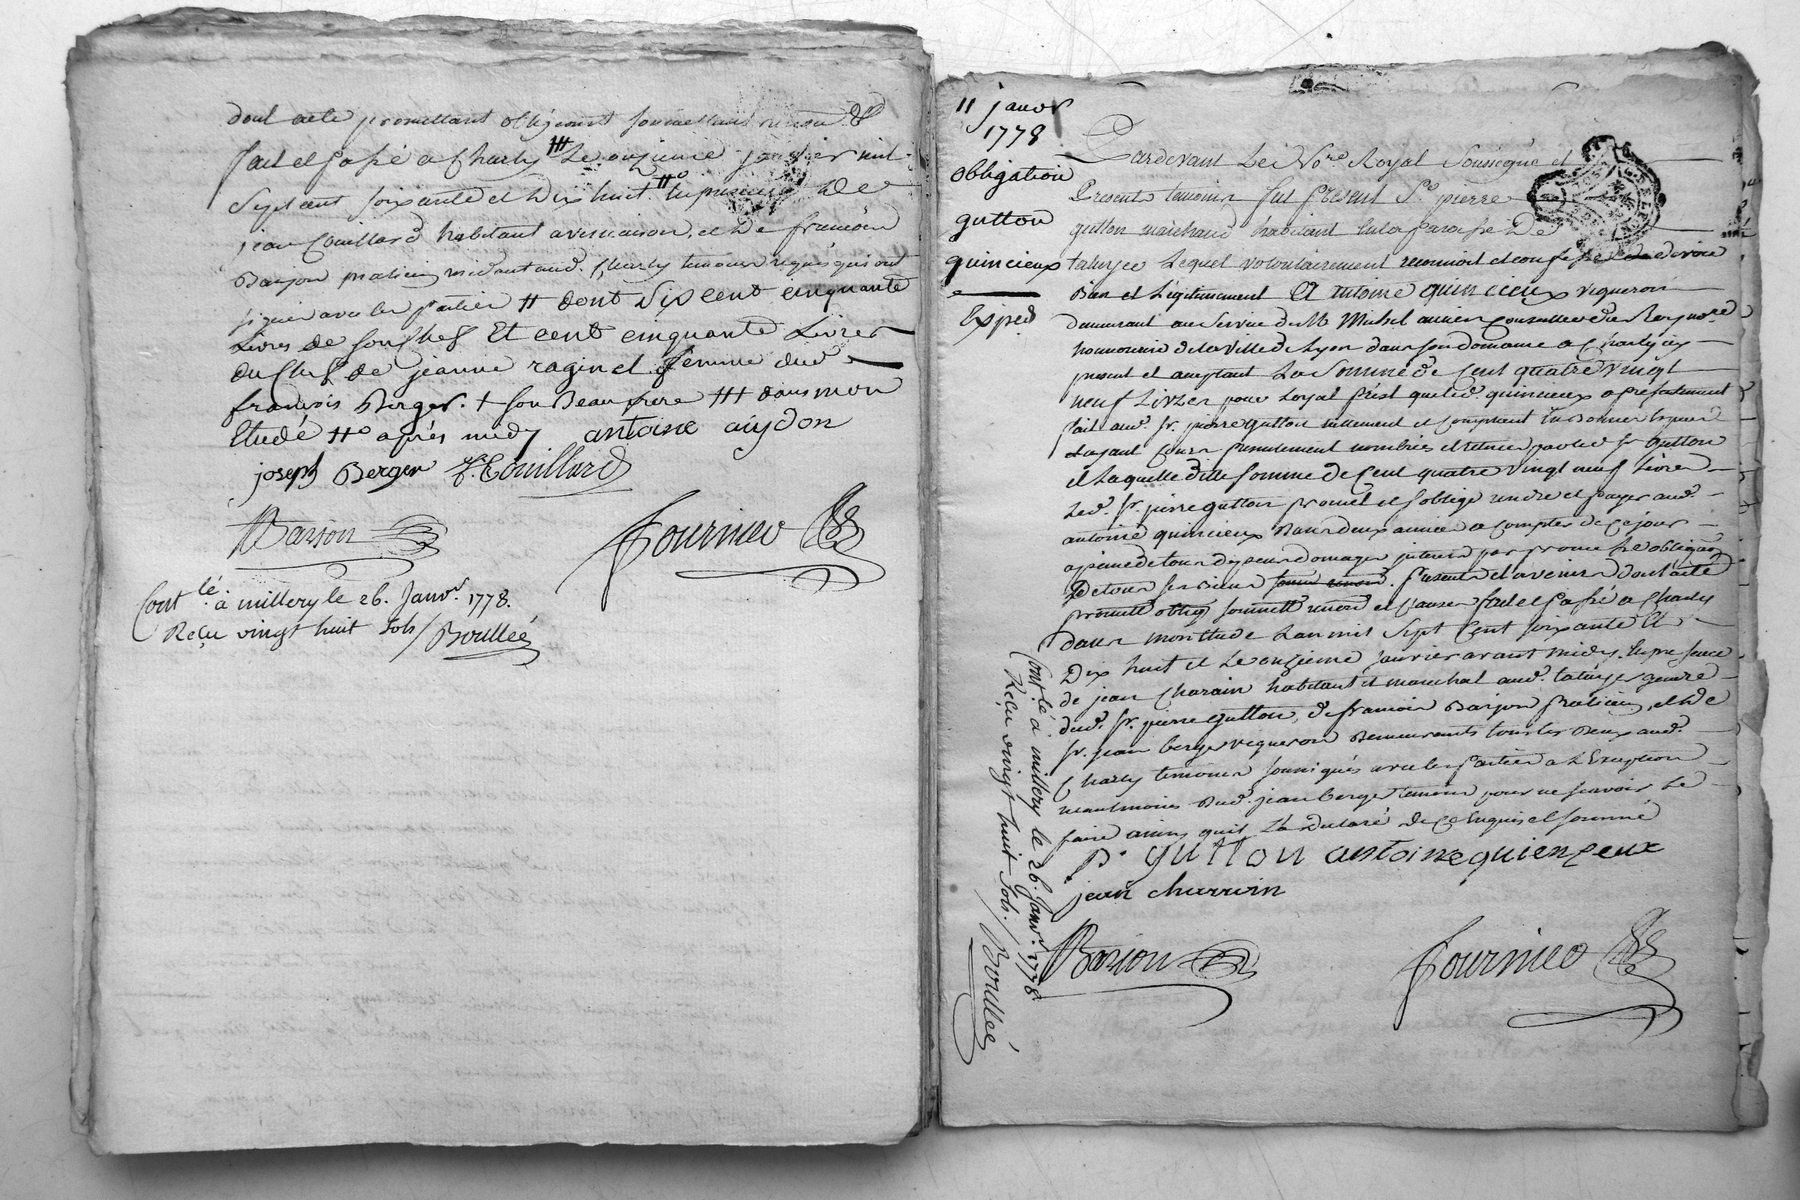 dont acte promettant obligeant soumettant renon &
fait et passé a Charly ## le onzieme janvier mil
Sept cent soixante et dix huit #° en presence de
jean Couillard habitant a vernaison, et de francois
Barjon praticien residant aud. Charly temoins requis qui ont
signé avec les parties # dont Six cent cinquante
Livres de son chef Et cent cinquante Livres
du Chef de jeanne raginel femme dud
francois Berger. + son Beau frere ## dans mon
Etude #° aprés midy antoine aiydon
joseph Berger J. Couillard
Barjon Fournier
Cont.lé à millery le 26. Janv.r 1778.
Reçu vingt huit sols / Boullée
11 janvr
1778
Obligation
gutton
quincieux
Exped
Pardevant Le No.re Royal Soussigné et
Presents temoins fut Present Sr. pierre
gutton marchand habitant en la Paroisse de
taluyer Lequel volontairement reconnoit et confesse devoir
Bien et Légitimement A Antoine quincieux vigneron
demeurant au Service de Mr Michel ancien Conseiller du Roy no.re
honnoraire de la Ville de Lyon dans son domaine a Charly icy
present et acceptant La Somme de Cent quatre vingt
neuf Livres pour Loyal Prest que led. quincieux a présentement
fait aud. Sr. pierre Gutton réellement et comptant en Bonnes Especes
ayant Cours Presentement nombrées et retirées par led Sr Gutton
et Laquelle ditte somme de Cent quatre vingt neuf Livres
Led. Sr. pierre gutton promet et s'oblige rendre et payer aud.
antoine quincieux Dans deux années a compter de Ce jour
a peine de tous depens domages interets par promesse obligaon
De tous ses Biens presents et avenir dont acte
promett oblig soumett renon et Clauses fait et Passé a Charly
dans mon Etude L'an mil Sept Cent soixante Et
Dix huit et Le onzieme janvier avant midy En presence
de jean Charvin habitant et marechal aud. taluyer gendre
dud. Sr. pierre Gutton, de francois Barjon Praticien, et de
Sr. jean berger vigneron Demeurants tous les Deux aud.
Charly temoins soussignés avec les Parties a L'Exception
neantmoins Dud. jean berger temoin pour ne scavoir Le
faire ainsy quil L'a declaré de Ce Enquis et sommé
Pr gutton antoine quienseux
jean charrvin
Barjon Fournier
Cont.lé à millery le 26. Janv.r 1778
Reçu vingt huit sols. / Boullée